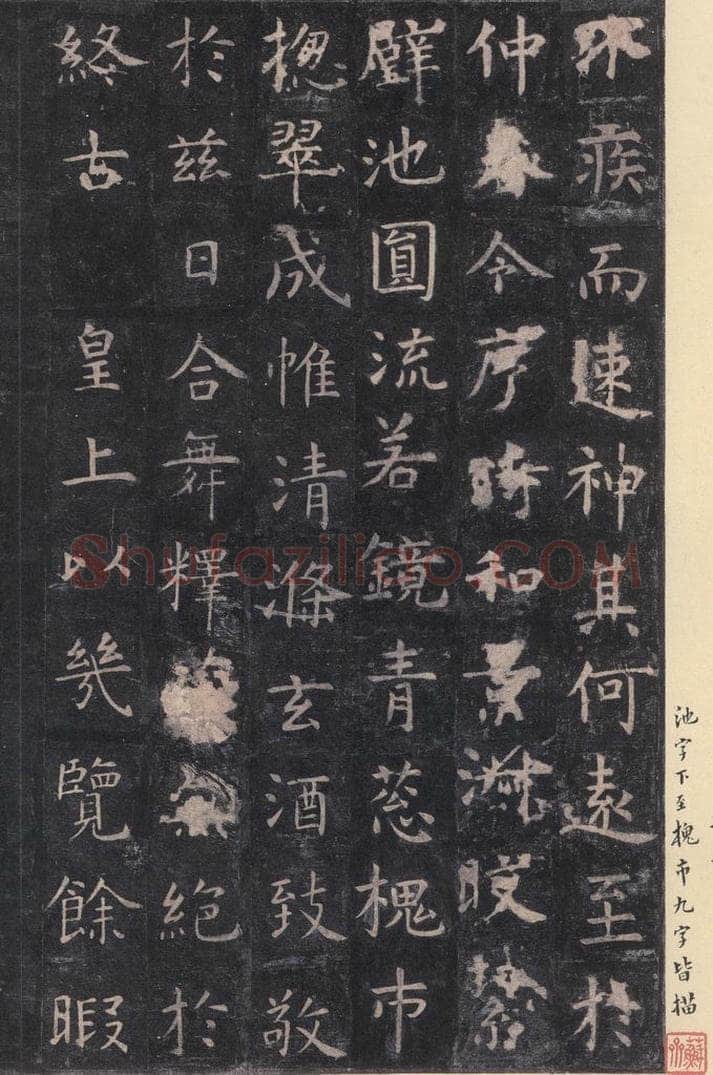 池字下至槐市九字皆描
不疾而速神其何遠至於
仲春令序時和景淑皎潔
璧池圓流若鏡青葱槐市
揔翠成帷清滌玄酒致敬
於茲日合舞釋菜無絕於
終古 皇上以幾覽餘暇
Shufaziliao.COM